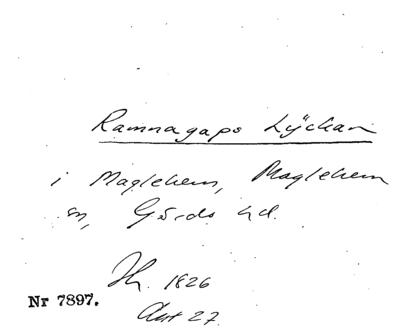 Ramnagaps Lÿckan
i Maglehem, Maglehem
sn, Gärds hd.
Sk. 1826
Nr 7897.
Akt 27.